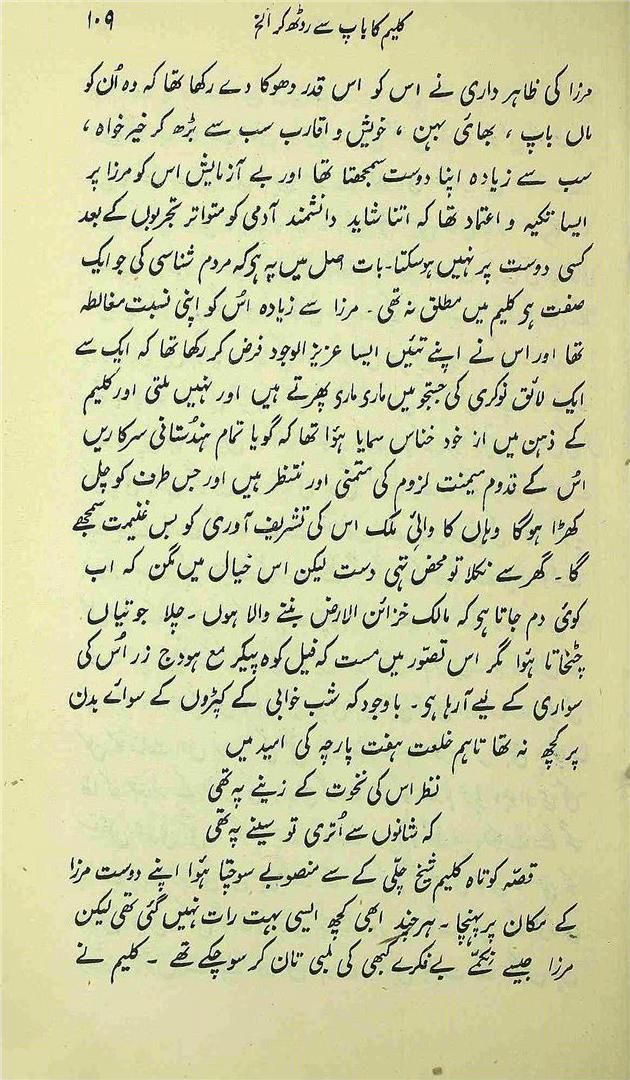 ۱۰۹ کلیم کا باپ سے روٹھ کر الخ
مرزا کی ظاہر داری نے اس کو اس قدر دھوکا دے رکھا تھا کہ وہ اُن کو
ماں باپ ، بھائی بہن ، خویش و اقارب سب سے بڑھ کر خیر خواہ ،
سب سے زیادہ اپنا دوست سمجھتا تھا اور بے آزمایش اس کو مرزا پر
ایسا تکیہ و اعتماد تھا کہ اتنا شاید دانشمند آدمی کو متواتر تجربوں کے بعد
کسی دوست پر نہیں ہو سکتا۔ بات اصل میں یہ ہی کہ مردم شناسی کی جو ایک
صفت ہی کلیم میں مطلق نہ تھی۔ مرزا سے زیادہ اُس کو اپنی نسبت مغالطہ
تھا اور اس نے اپنے تئیں ایسا عزیز الوجود فرض کر رکھا تھا کہ ایک سے
ایک لائق نوکری کی جستجو میں ماری ماری پھرتے ہیں اور نہیں ملتی اور کلیم
کے ذہن میں از خود خناس سمایا ہؤا تھا کہ گویا تمام ہندُستانی سرکاریں
اُس کے قدوم میمنت لزوم کی متمنی اور منتظر ہیں اور جس طرف کو چل
کھڑا ہو گا وہاں کا والیِ ملک اس کی تشریف آوری کو بس غنیمت سمجھے
گا۔ گھر سے نکلا تو محض تہی دست لیکن اس خیال میں مگن کہ اب
کوئی دم جاتا ہی کہ مالک خزائن الارض بننے والا ہوں۔ چلا جوتیاں
چٹخاتا ہؤا مگر اس تصوّر میں مست کہ فیل کوہ پیکر مع ہودج زر اُس کی
سواری کے لیے آ رہا ہی۔ باوجودکہ شب خوابی کے کپڑوں کے سوائے بدن
پر کچھ نہ تھا تاہم خلعت ہفت پارچہ کی امید میں
نظر اس کی نخوت کے زینے پہ تھی
کہ شانوں سے اُتری تو سینے پہ تھی
قصّہ کوتاہ کلیم شیخ چلّی کے سے منصوبے سوچتا ہؤا اپنے دوست مرزا
کے مکان پر پہنچا۔ ہر چند ابھی کچھ ایسی بہت رات نہیں گئی تھی لیکن
مرزا جیسے نکمّے بے فکرے کبھی کی لمبی تان کر سو چکے تھے۔ کلیم نے